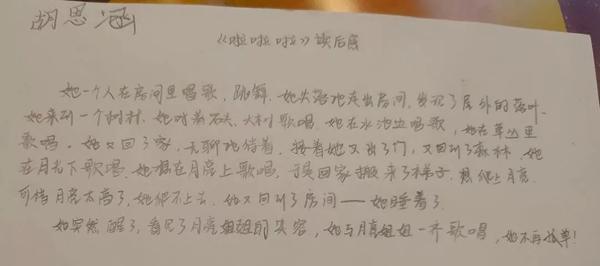 胡思涵
《啦啦啦》读后感
她一个人在房间里唱歌，跳舞.她失落地走出房间，发现了屋外的落叶.
她来到一个树林.她对着石头、大树歌唱.她在水池边唱歌，她在草丛里
歌唱。她又回了家，无聊地待着.接着她又出了门，又回到了森林，她
在月光下歌唱.她想在月亮上歌唱.于是回家搬来了梯子.想爬上月亮.
可惜月亮太高了，她爬不上去.她又回到了房间——她睡着了.
她突然醒了，看见了月亮姐姐的笑容，她与月亮姐姐一齐歌唱，她不再孤单！